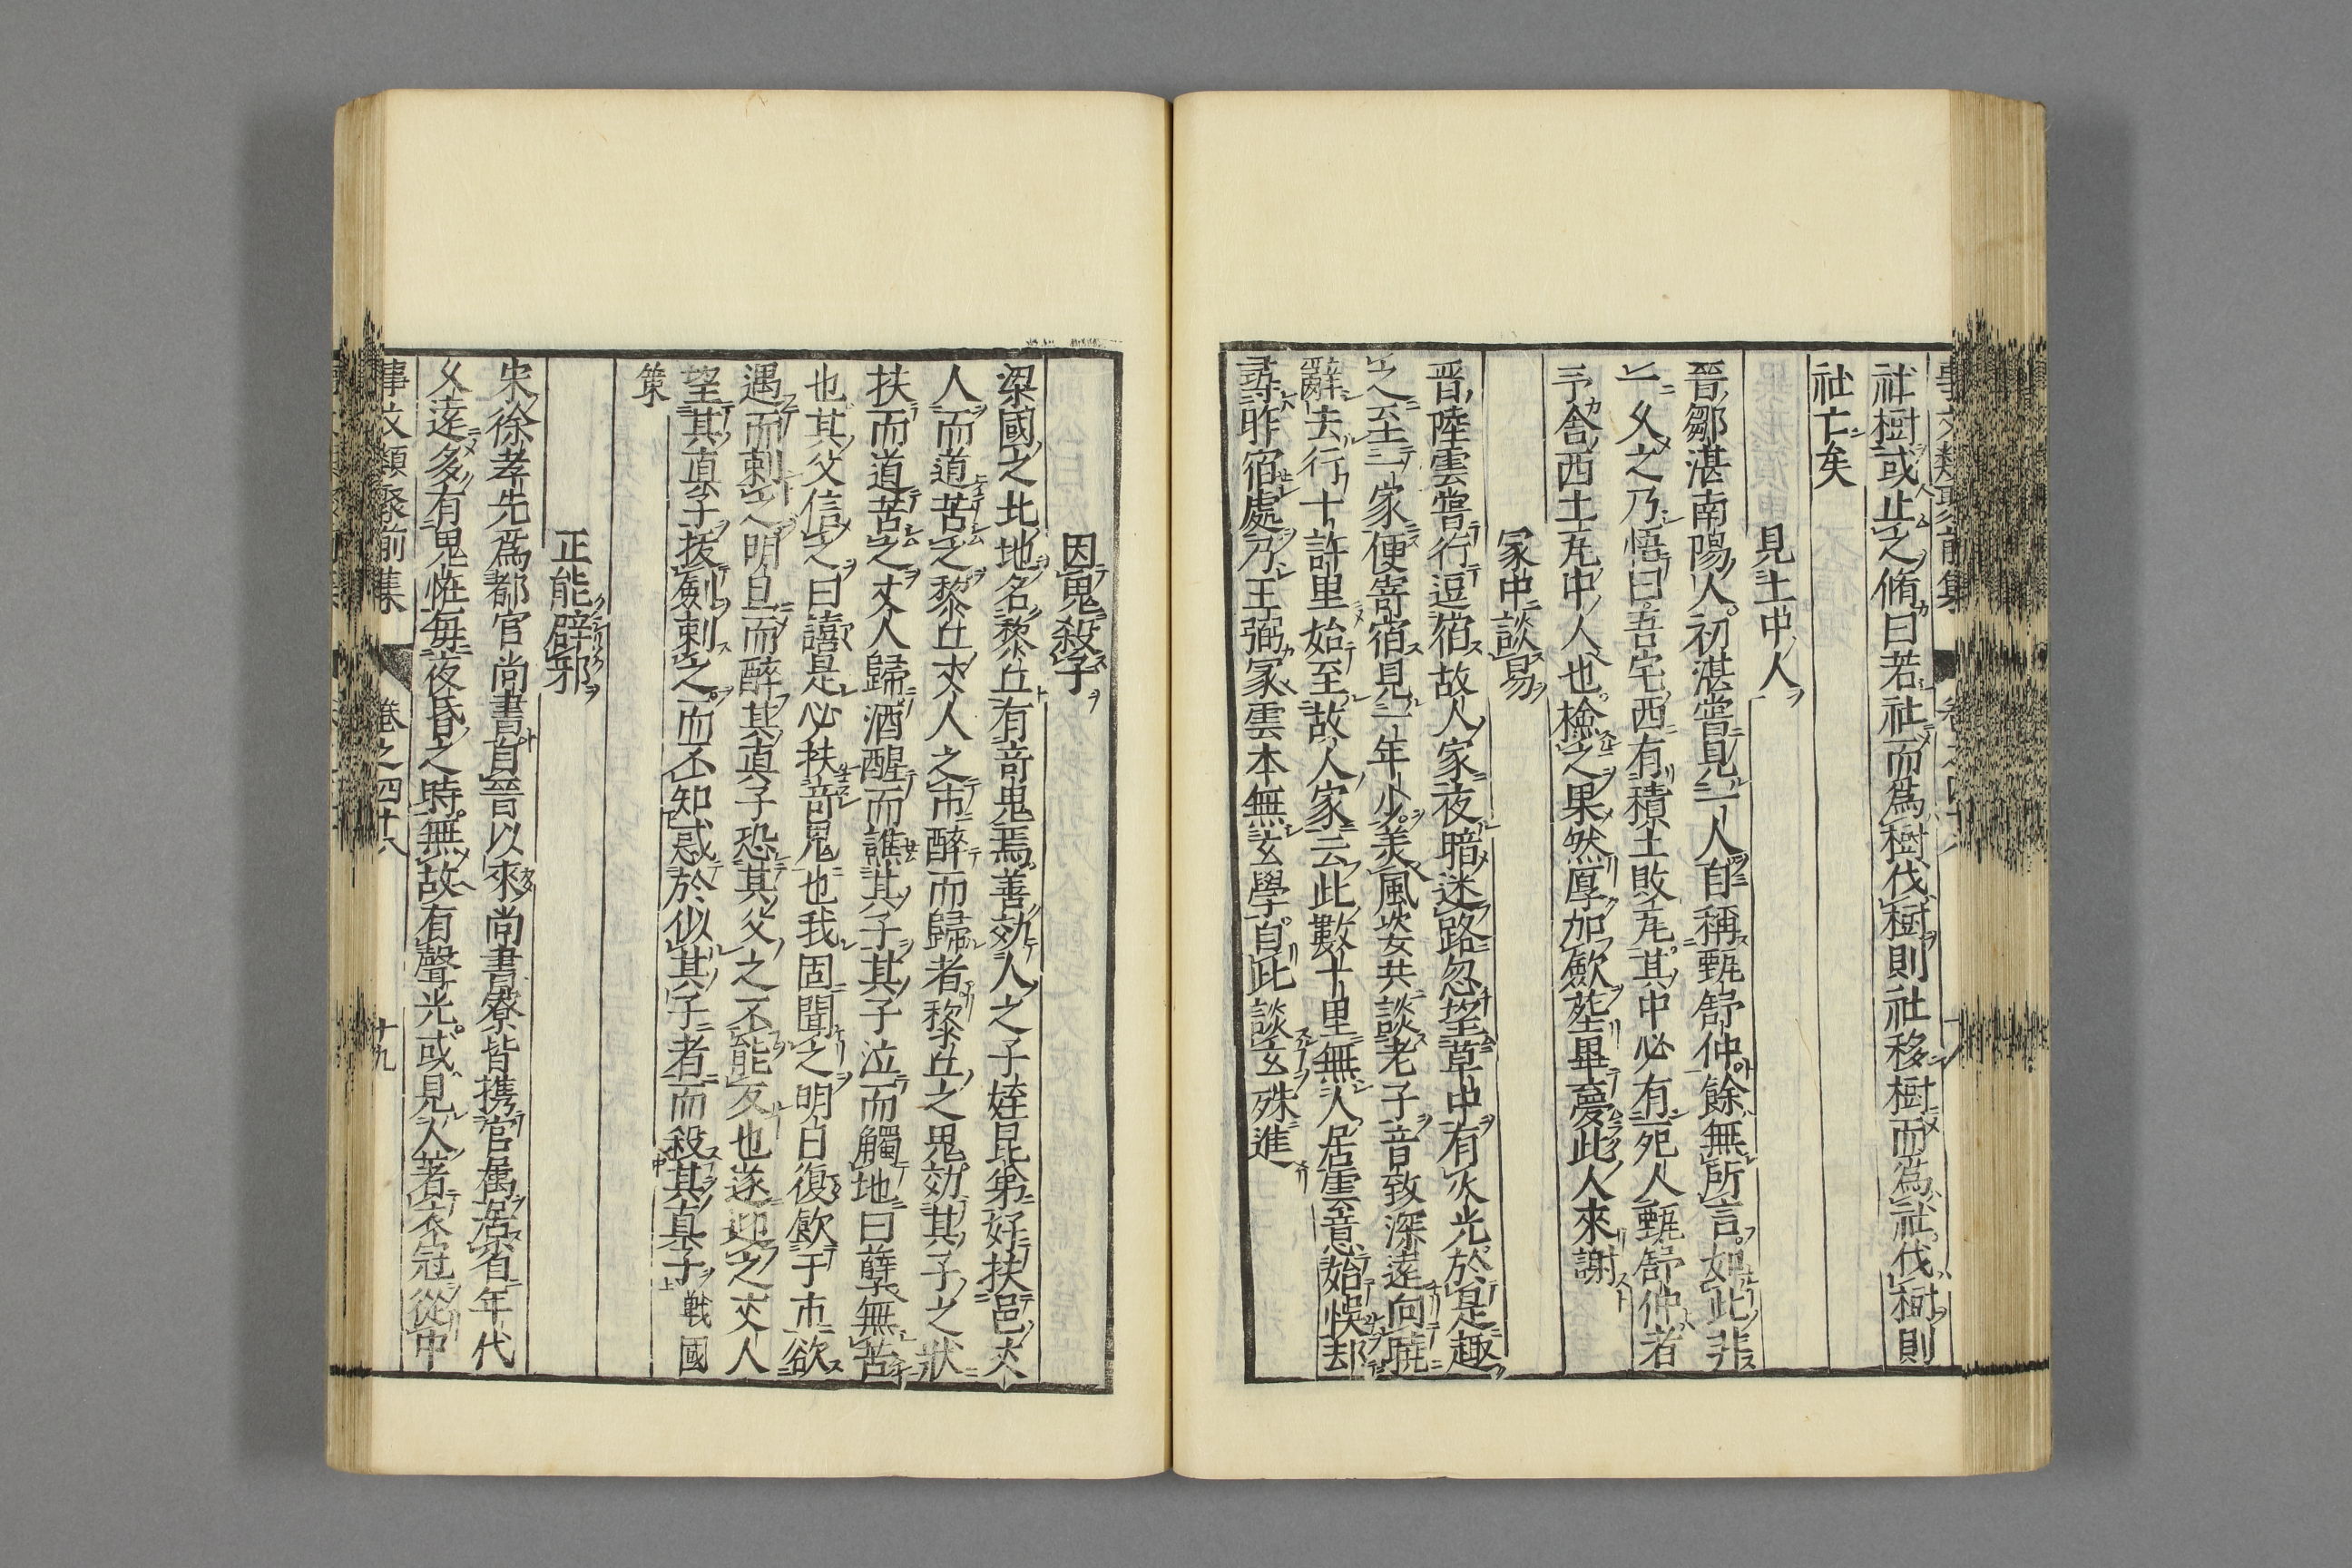 社樹或止之脩曰若社而爲樹伐樹則社移樹而爲社伐樹則
社亡矣
見土中人
晉鄒湛南陽人初湛嘗見一人自稱甄舒仲餘無所言如此非
一久之乃悟曰吾宅西有積土敗瓦其中必有死人甄舒仲者
予舍西土瓦中人也檢之果然厚加斂葬畢夢此人來謝
冢中談易
晉陸雲嘗行逗宿故人家夜暗迷路忽望草中有火光於是趣
之至一家便寄宿見一年少美風姿共談老子音致深遠向曉
辭去行十許里始至故人家云此數十里無人居雲意始悞却
尋昨宿處乃王弼冢雲本無玄學自此談玄殊進
因鬼殺子
梁國之北地名黎丘有奇鬼焉善効人之子姪昆弟好扶邑丈
人而道苦之黎丘丈人之市醉而歸者黎丘之鬼効其子之狀
扶而道苦之丈人歸酒醒而譙其子其子泣而觸地曰孽無苦
也其父信之曰譆是必扶奇鬼也我固聞之明日復飲于市欲
遇而刺之明旦而醉其真子恐其父之不能反也遂迎之丈人
望其真子拔劍刺之而不知惑於似其子者而殺其真子戰國
策
正能辟邪
宋徐孝先爲都官尚書自晉以來尚書寮皆攜官属居省年代
久遠多有鬼怪每夜昏之時無故有聲光或見人著衣冠從中
事文類聚前集 卷之四十八 十九